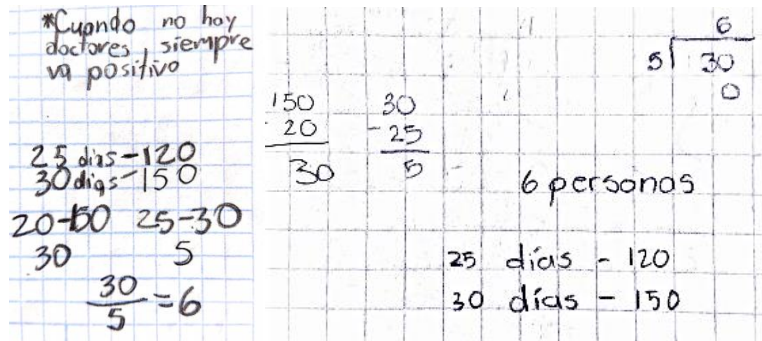 *Cuando no hay
doctores, siempre
va positivo
25 dias - 120
30 dias - 150
20-150 25-30
30 5
30/5 = 6
150
20
30
30
- 25
5
6
5 30
0
6 personas
25 días - 120
30 días - 150